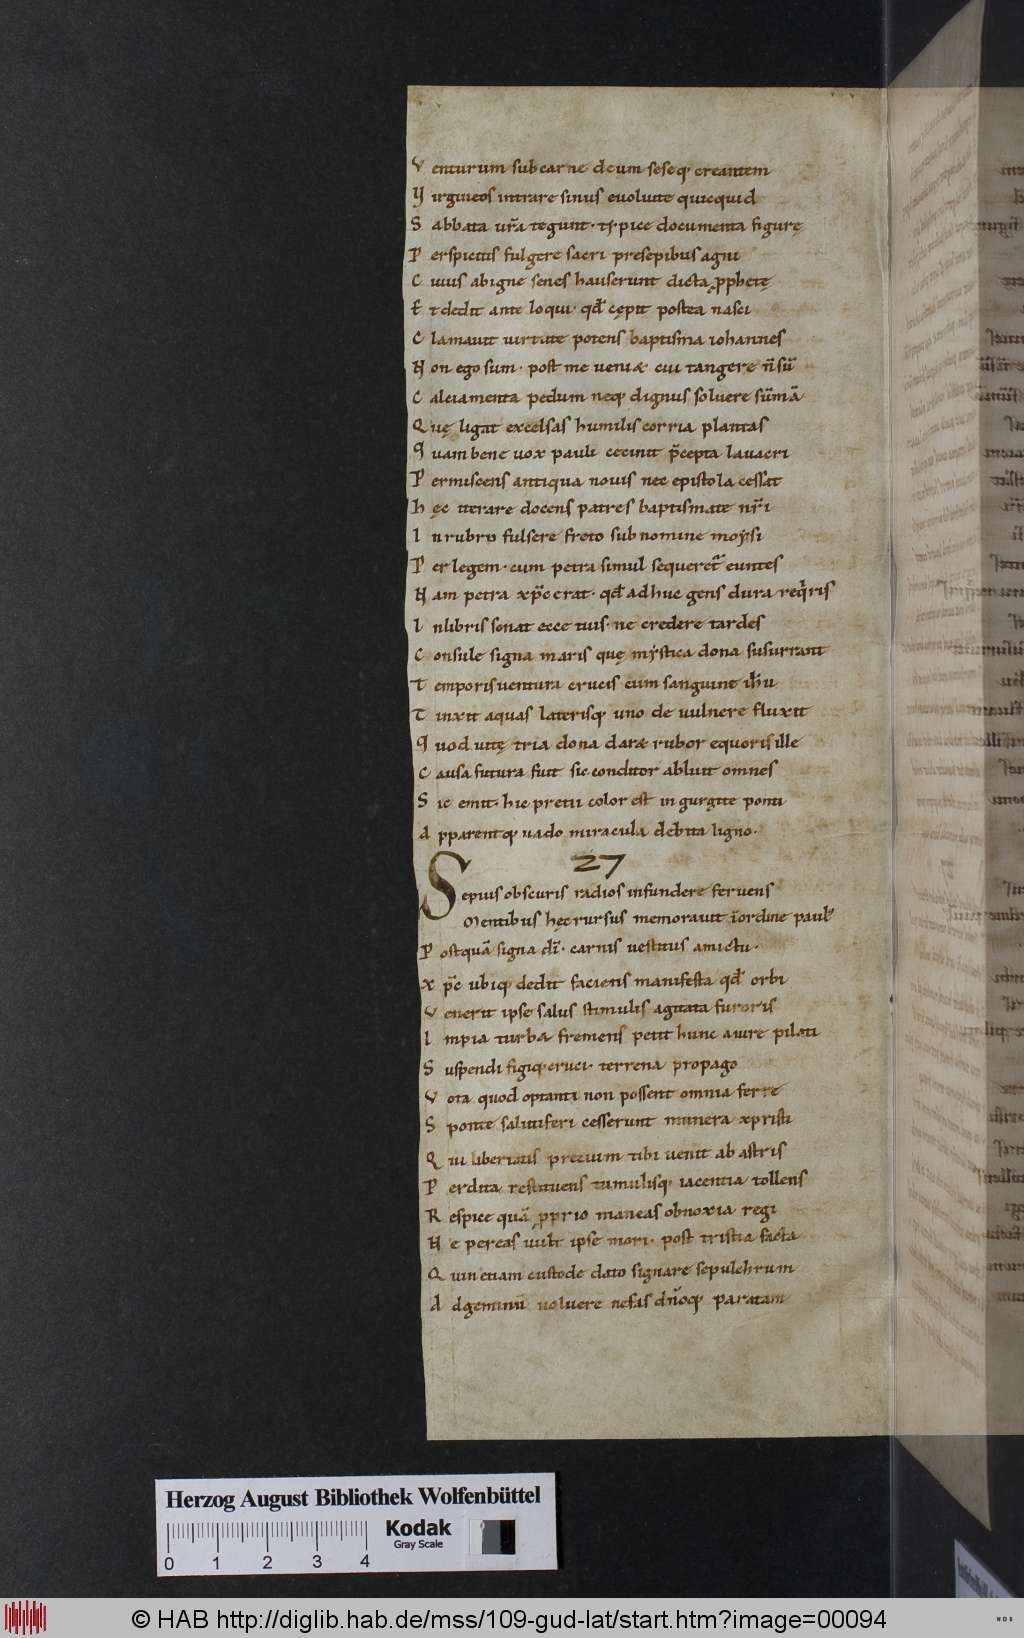 V enturum sub carne deum seseq; creantem
V irgineos intrare sinus euoluite quicquid
S abbata ur̄a tegunt· ⁊ spice documenta figurę
P erspicitis fulgere sacri presepibus agni
C uius ab igne senes hauserunt dicta ꝓphetę
E t dedit ante loqui· qđ cępit postea nasci
C lamauit uirtute potens baptisma iohannes
N on ego sum· post me ueniæ cui tangere n̄ sū
C alciamenta pedum neq; dignus soluere sūmā
Q uę ligat excelsas humilis corria plantas
Q uam bene uox pauli cecinit p̄cepta lauacri
P ermiscens antiqua nouis nec epistola cessat
h ęc iterare docens patres baptismate nr̄i
I n rubro fulsere freto sub nomine moysi
P er legem· cum petra simul sequeret̄ euntes
N am petra xp̄c erat· qđ adhuc gens dura reqͥris
I n libris sonat ecce tuis· ne credere tardes
C onsule signa maris quę mystica dona susurrant
T emporis uentura crucis cum sanguine ih̄u
T inxit aquas laterisq; uno de uulnere fluxit
Q uod uitę tria dona daræ rubor equoris ille
C ausa futura fuit sic conditor abluit omnes
S ic emit· hic pretii color est in gurgite ponti
A pparentq; uado miracula debita ligno·
27
Sepius obscuris radios infundere feruens
Mentibus hęc rursus memorauit ī ordine paulꝰ
P ostquā signa dī· carnis uestitus amictu·
X p̄c ubiq; dedit faciens manifesta qđ orbi
V enerit ipse salus stimulis agitata furoris
I mpia turba fremens petit hunc a iure pilati
S uspendi figiq; cruci· terrena propago
V ota quod optanti non possent omnia ferre
S ponte salutiferi cesserunt munera xpristi
Q ui libertatis precium tibi uenit ab astris
P erdita restituens tumulisq; iacentia tollens
R espice quā ꝓprio maneas obnoxia regi
N e pereas uult ipse mori· post tristia facta
Q uin etiam custode dato signare sepulchrum
A d geminū uoluere nefas dn̄oq; paratam
Herzog August Bibliothek Wolfenbüttel
0 1 2 3 4
Kodak
Gray Scale
© HAB http://diglib.hab.de/mss/109-gud-lat/start.htm?image=00094
WDB